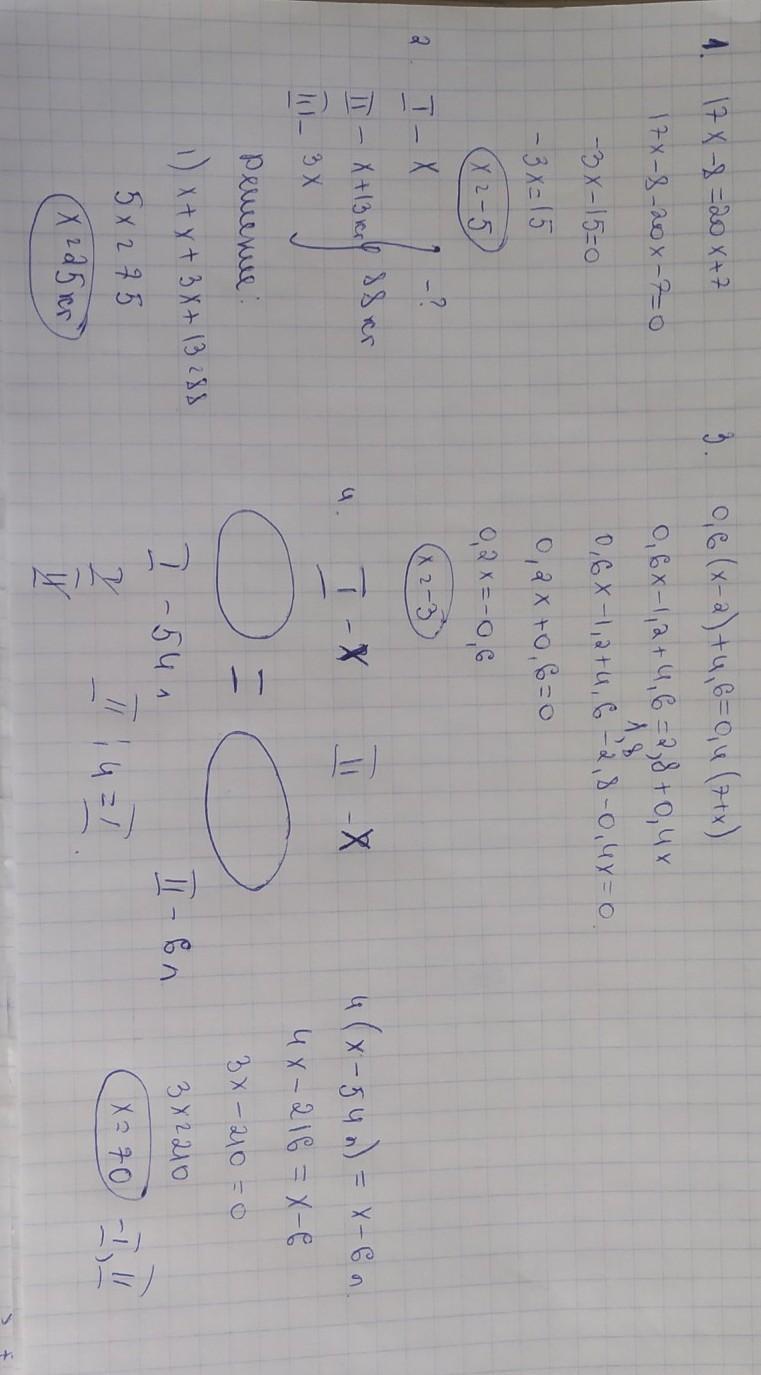 1. 17x-8=20x+7
17x-8-20x-7=0
-3x-15=0
-3x=15
x=-5
2. I - x
II - x+13кг 88кг -?
III - 3x
Решение:
1) x+x+3x+13=88
5x=75
x=25кг
3. 0,6(x-2)+4,6=0,4(7+x)
0,6x-1,2+4,6=2,8+0,4x
1,8
0,6x-1,2+4,6-2,8-0,4x=0
0,2x+0,6=0
0,2x=-0,6
x=-3
4. I - x II - x
=
I - 54л II - 6л
II | 4 = I
4(x-54л)=x-6л
4x-216=x-6
3x-210=0
3x=210
x=70 - I, II